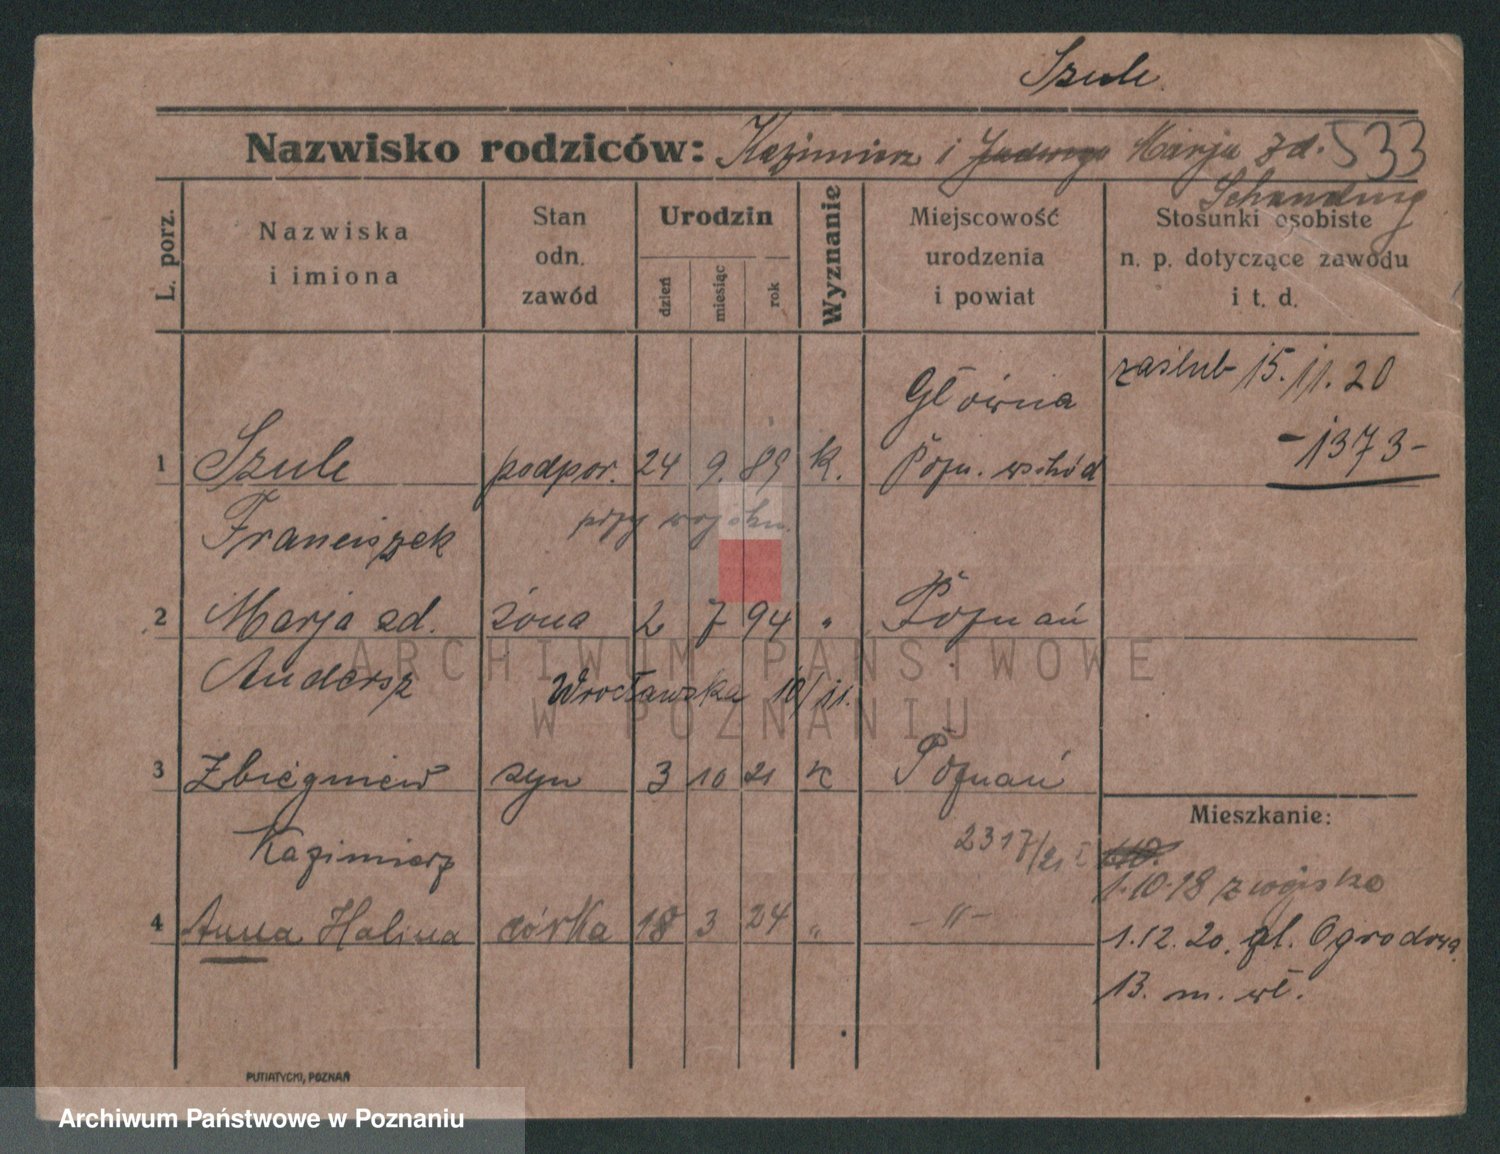 Szulc
Nazwisko rodziców: Kazimierz i Jadwiga Marja zd. 533
Schanding
L. porz.
Nazwiska
i imiona
Stan
odn.
zawód
Urodzin
dzień
miesiąc
rok
Wyznanie
Miejscowość
urodzenia
i powiat
Stosunki osobiste
n. p. dotyczące zawodu
i t. d.
zaślub 15. 11. 20
- 1373 -
Główna
1 Szulc podpor. 24 9. 89 k. Pozn. wschód
Franciszek przy wojsku.
2 Marja zd. żona 2 7 94 " Poznań
Andersz Wrocławska 10/11.
3 Zbiegniew syn 3 10 21 k Poznań
Kazimierz 2317/21
4 Anna Halina córka 18 3 24 " - " -
Mieszkanie:
1.10.18 z wojska
1.12.20. pl. Ogrodowa
13. m. wł.
PUTIATYCKI, POZNAŃ
ARCHIWUM PAŃSTWOWE
W POZNANIU
Archiwum Państwowe w Poznaniu